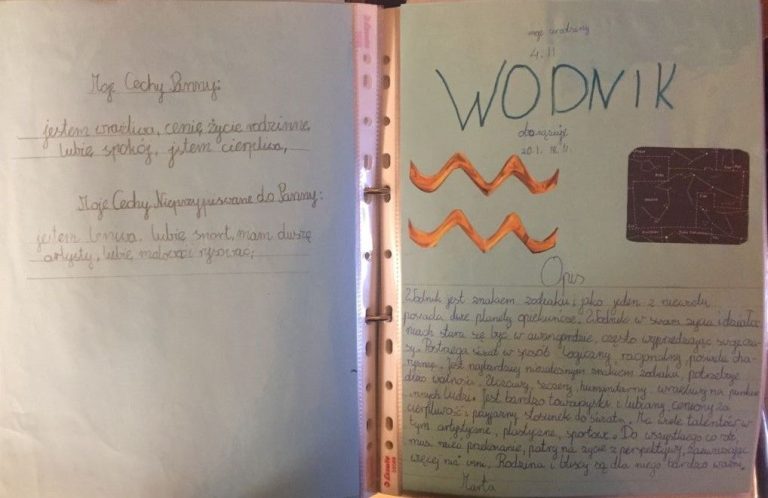 Moje Cechy Panny:
jestem wrażliwa, cenię życie rodzinne,
lubię spokój, jestem cierpliwa,
Moje Cechy Nieprzypisywane do Panny:
jestem leniwa, lubię sport, mam duszę
artysty, lubię malować i rysować,
moje urodziny
4. II
WODNIK
obowiązuje
20.I. 18.II.
Opis
Wodnik jest znakiem zodiaku i jako jeden z niewielu
posiada dwie planety opiekuńcze. Wodnik w swoim życiu i działa
niach stara się być w awangardzie, często wyprzedzając swoje cza-
sy. Postrzega świat w sposób logiczny, racjonalny, posiada cha-
ryzmę. Jest najbardziej niezależnym znakiem zodiaku, potrzebuje
dużo wolności. Uczciwy, szczery, humanitarny, wrażliwy na
innych ludzi. Jest bardzo towarzyski i lubiany, ceniony za
cierpliwość i przyjazny stosunek do świata. Ma wiele talentów w
tym artystyczne, plastyczne, sportowe. Do wszystkiego co robi,
musi mieć przekonanie, patrzy na życie z perspektywy, zauważając
więcej niż inni. Rodzina i bliscy są dla niego bardzo ważni.
Marta